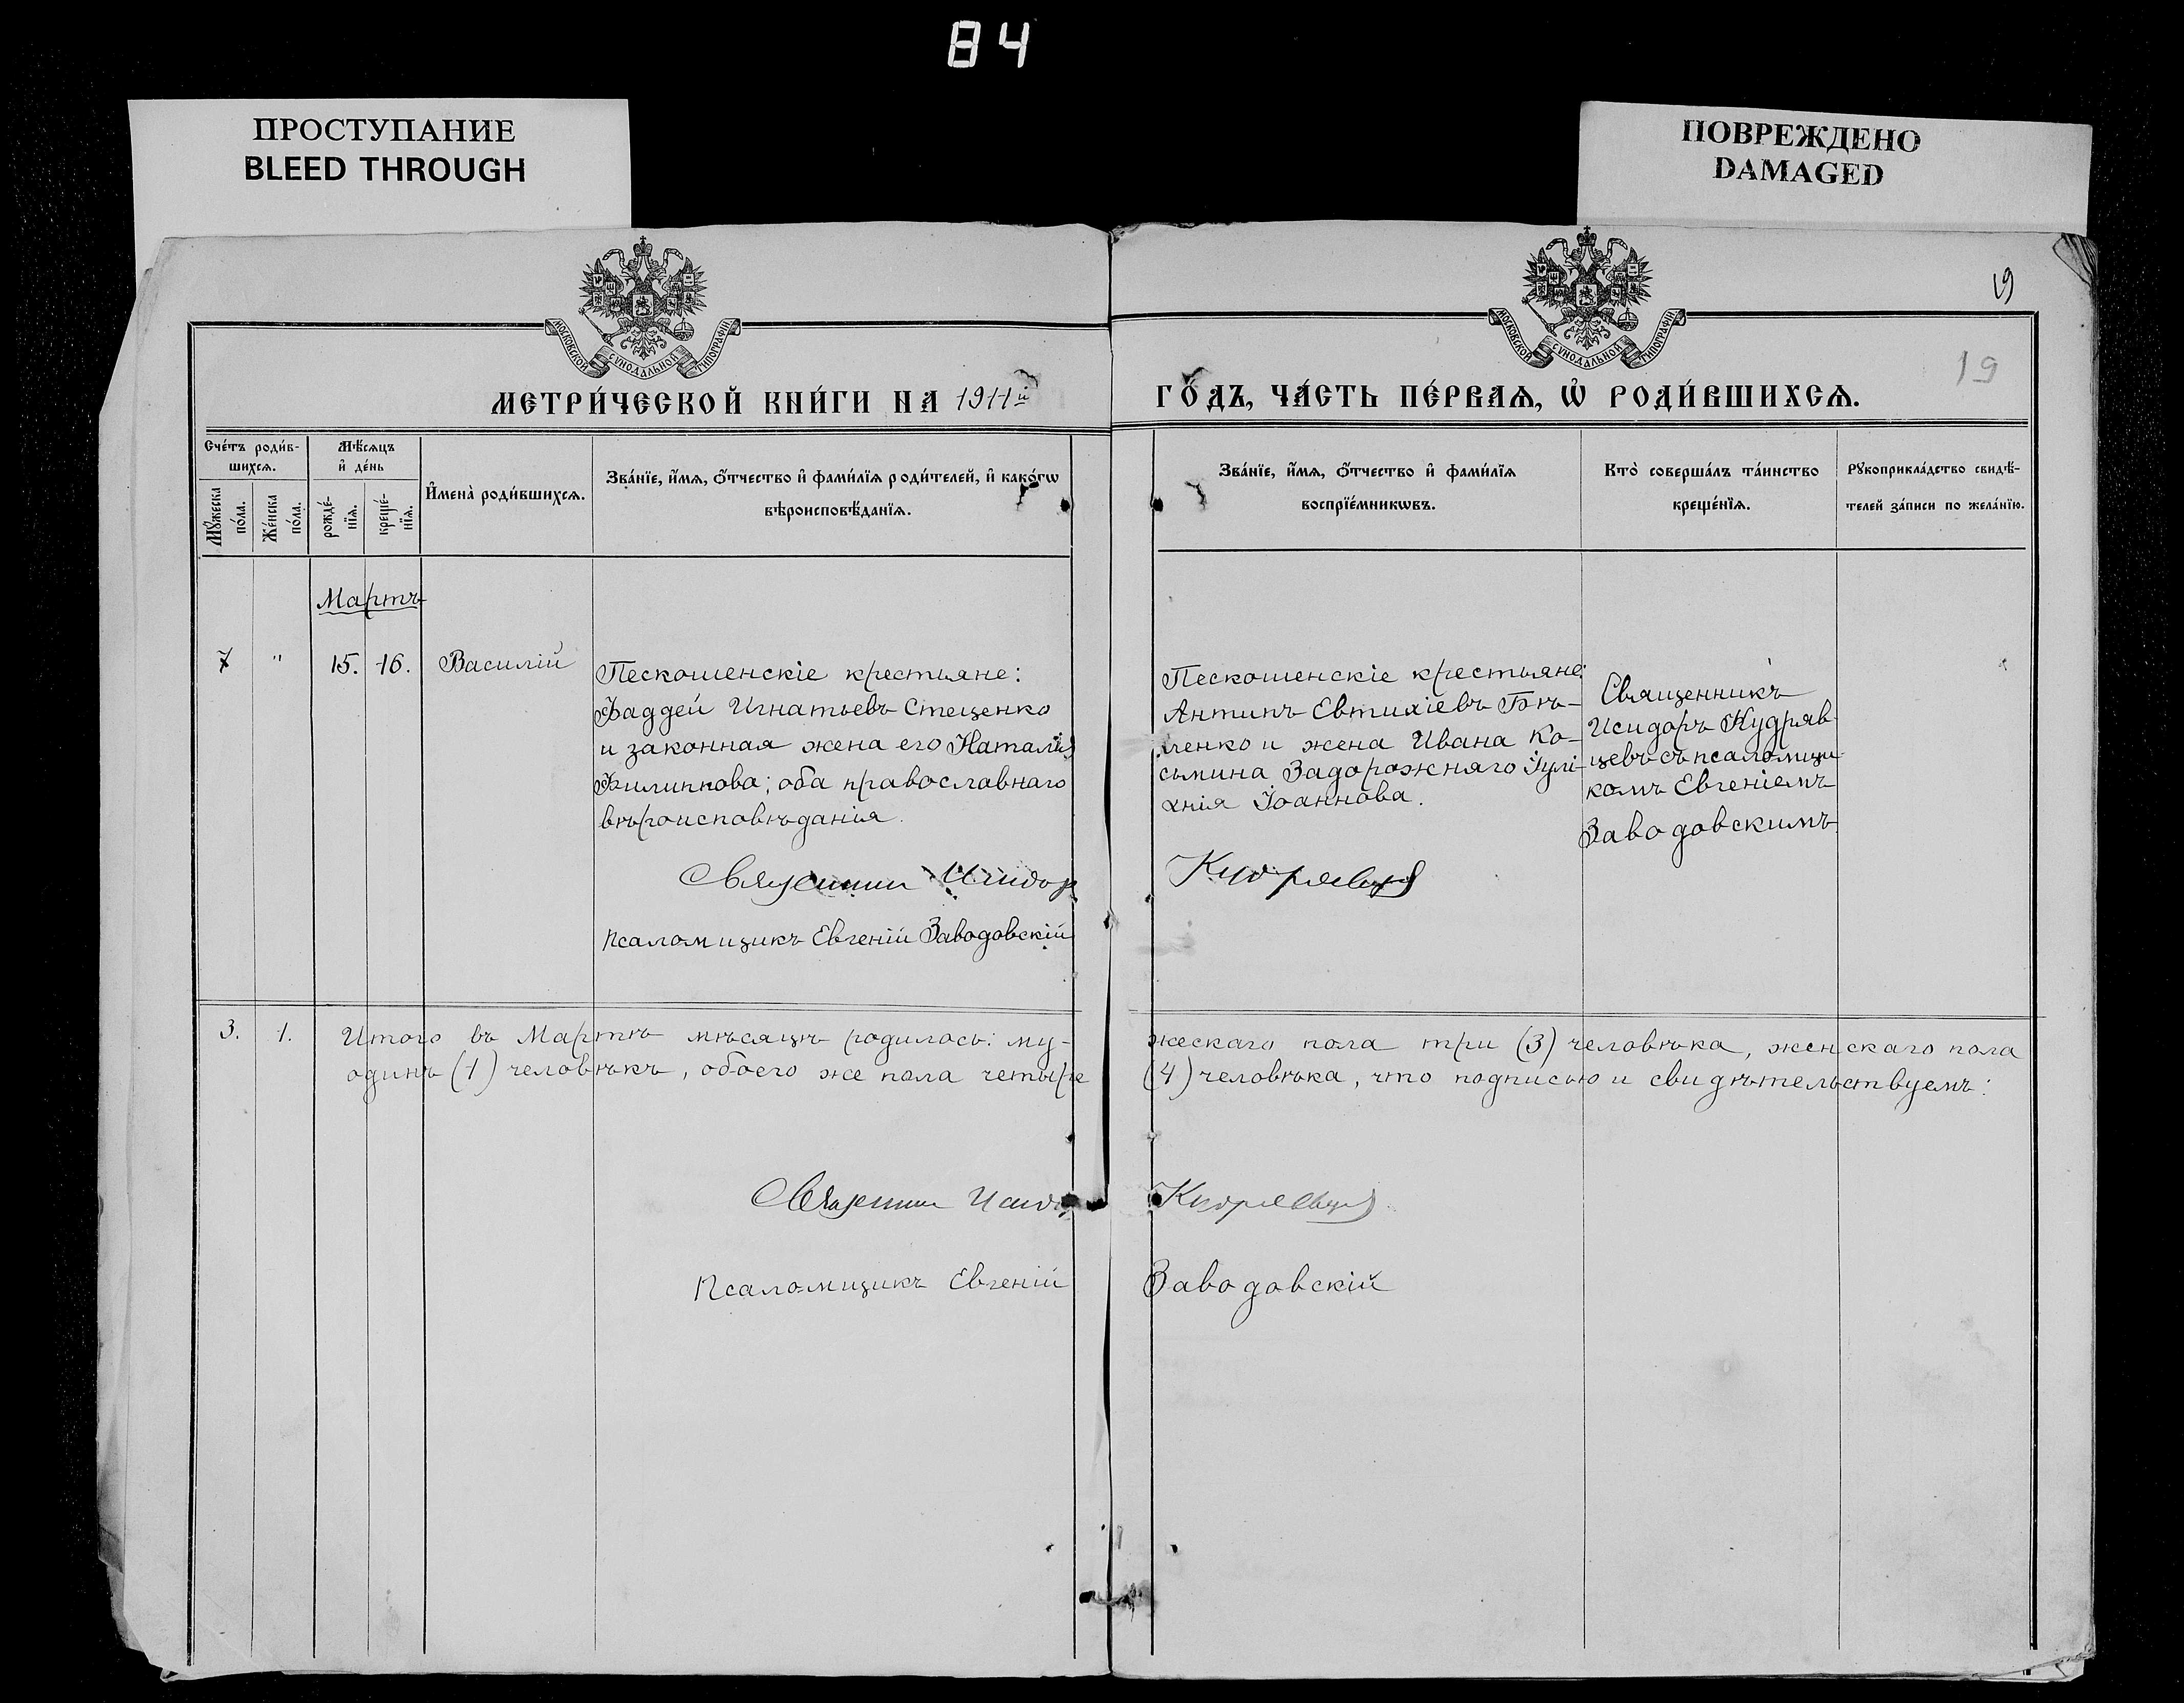 84
ПРОСТУПАНИЕ
BLEED THROUGH
ПОВРЕЖДЕНО
DAMAGED
МОСКОВСКОЙ СѴНОДАЛЬНОЙ ТИПОГРАФІИ
МОСКОВСКОЙ СѴНОДАЛЬНОЙ ТИПОГРАФІИ
19
19
МЕТРИ́ЧЕСКОЙ КНИ́ГИ НА 1911й ГО́ДЪ, ЧА́СТЬ ПЕ́РВАѦ, Ѡ҆ РОДИ́ВШИХСѦ.
Сче́тъ роди́в-
шихсѧ.
Мꙋжеска по́ла.
Же́нска по́ла.
Мѣ́сѧцъ
и҆ де́нь
рожде́-
нїѧ.
креще́-
нїѧ.
И҆мена̀ роди́вшихсѧ.
Зва́нїе, и҆́мѧ, ѻ҆́тчество и҆ фами́лїѧ роди́телей, и҆ како́гѡ
вѣроисповѣ́данїѧ.
Зва́нїе, и҆́мѧ, ѻ҆́тчество и҆ фами́лїѧ
воспрїе́мникѡвъ.
Кто̀ соверша́лъ та́инство
креще́нїѧ.
Рꙋкоприкла́дство свидѣ́-
телей за́писи по жела́нїю.
Мартъ
7 " 15. 16. Василій
Пескошенскіе крестьяне:
Фаддей Игнатьевъ Стеценко
и законная жена его Наталія
Филиппова; оба православнаго
вѣроисповѣданія.
Пескошенскіе крестьяне:
Антипъ Евтихіевъ Бѣ-
ленко и жена Ивана Ко-
сьмина Задорожняго Іулі-
хнія Іоаннова.
Священникъ
Исидоръ Кудряв-
цевъ съ псаломщи-
комъ Евгеніемъ
Заводовскимъ
Священник Исидор Кудрявцев
Псаломщикъ Евгеній Заводовскій
3. 1. Итого въ Мартѣ мѣсяцѣ родилось: му-жескаго пола три (3) человѣка, женскаго пола
одинъ (1) человѣкъ, обоего же пола четыре (4) человѣка, что подписью и свидѣтельствуемъ:
Священник Исидор Кудрявцев
Псаломщикъ Евгеній Заводовскій